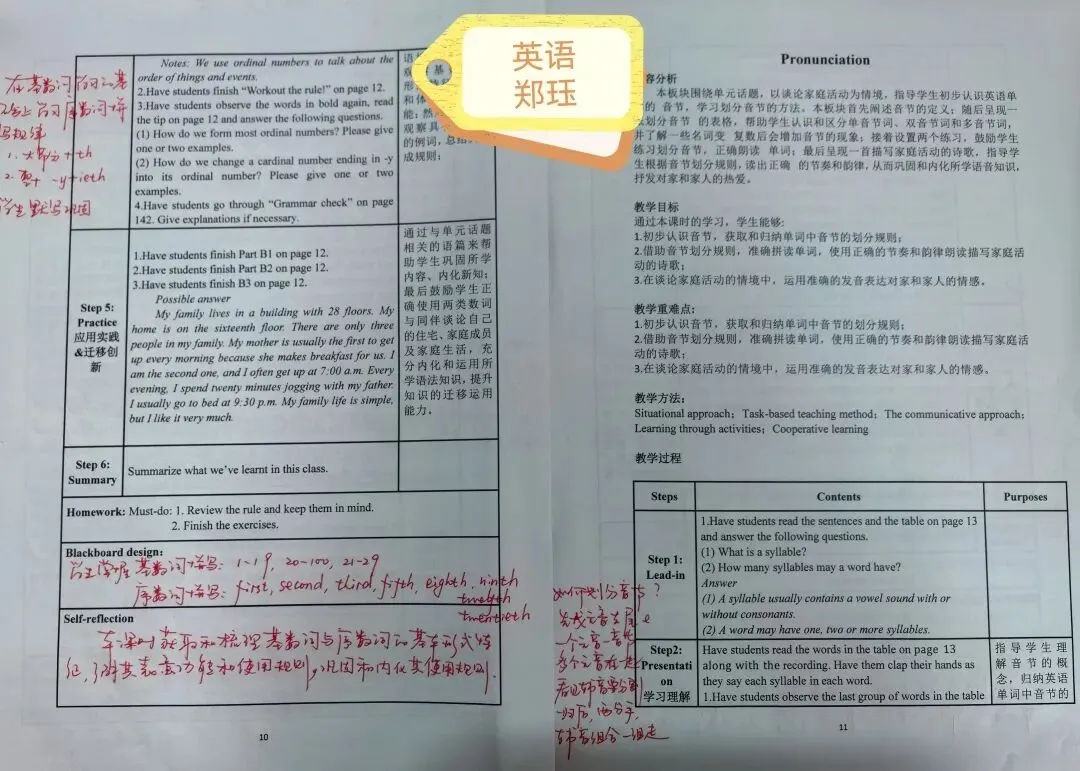 英语
郑珏
Notes: We use ordinal numbers to talk about the
order of things and events.
2.Have students finish “Workout the rule!” on page 12.
3.Have students observe the words in bold again, read
the tip on page 12 and answer the following questions.
(1) How do we form most ordinal numbers? Please give
one or two examples.
(2) How do we change a cardinal number ending in -y
into its ordinal number? Please give one or two
examples.
4.Have students go through “Grammar check” on page
142. Give explanations if necessary.
观察具
的例词，总结
成规则；
学生默写巩固
Step 5:
Practice
应用实践
&迁移创
新
1.Have students finish Part B1 on page 12.
2.Have students finish Part B2 on page 12.
3.Have students finish B3 on page 12.
Possible answer
My family lives in a building with 28 floors. My
home is on the sixteenth floor. There are only three
people in my family. My mother is usually the first to get
up every morning because she makes breakfast for us. I
am the second one, and I often get up at 7:00 a.m. Every
evening, I spend twenty minutes jogging with my father.
I usually go to bed at 9:30 p.m. My family life is simple,
but I like it very much.
通过与单元话题
相关的语篇来帮
助学生巩固所学
内容、内化新知；
最后鼓励学生正
确使用两类数词
与同伴谈论自己
的住宅、家庭成员
及家庭生活，充
分内化和运用所
学语法知识，提升
知识的迁移运用
能力。
Step 6:
Summary
Summarize what we’ve learnt in this class.
Homework: Must-do: 1. Review the rule and keep them in mind.
2. Finish the exercises.
Blackboard design:
学生掌握基数词拼写: 1-19, 20-100, 21-29
序数词拼写: first, second, third, fifth, eighth, ninth
twelfth
twentieth
Self-reflection
本课时获取和梳理基数词与序数词的基本形式特
征,了解其表意功能和使用规则,巩固和内化其使用规则.
10
Pronunciation
容分析
本板块围绕单元话题，以谈论家庭活动为情境，指导学生初步认识英语单
的 音节，学习划分音节的方法。本板块首先阐述音节的定义；随后呈现一
划分音节 的表格，帮助学生认识和区分单音节词、双音节词和多音节词，
并了解一些名词变 复数后会增加音节的现象；接着设置两个练习，鼓励学生
练习划分音节，正确朗读 单词；最后呈现一首描写家庭活动的诗歌，指导学
生根据音节划分规则，读出正确 的节奏和韵律，从而巩固和内化所学语音知识，
抒发对家和家人的热爱。
教学目标
通过本课时的学习，学生能够:
1.初步认识音节，获取和归纳单词中音节的划分规则；
2.借助音节划分规则，准确拼读单词，使用正确的节奏和韵律朗读描写家庭活
动的诗歌；
3.在谈论家庭活动的情境中，运用准确的发音表达对家和家人的情感。
教学重难点:
1.初步认识音节，获取和归纳单词中音节的划分规则；
2.借助音节划分规则，准确拼读单词，使用正确的节奏和韵律朗读描写家庭活
动的诗歌；
3.在谈论家庭活动的情境中，运用准确的发音表达对家和家人的情感。
教学方法:
Situational approach；Task-based teaching method；The communicative approach；
Learning through activities；Cooperative learning
教学过程
Steps Contents Purposes
Step 1:
Lead-in
1.Have students read the sentences and the table on page 13
and answer the following questions.
(1) What is a syllable?
(2) How many syllables may a word have?
Answer
(1) A syllable usually contains a vowel sound with or
without consonants.
(2) A word may have one, two or more syllables.
Step2:
Presentati
on
学习理解
Have students read the words in the table on page 13
along with the recording. Have them clap their hands as
they say each syllable in each word.
1.Have students observe the last group of words in the table
指导学生理
解音节的概
念，归纳英语
单词中音节的
如何划分音节?
11